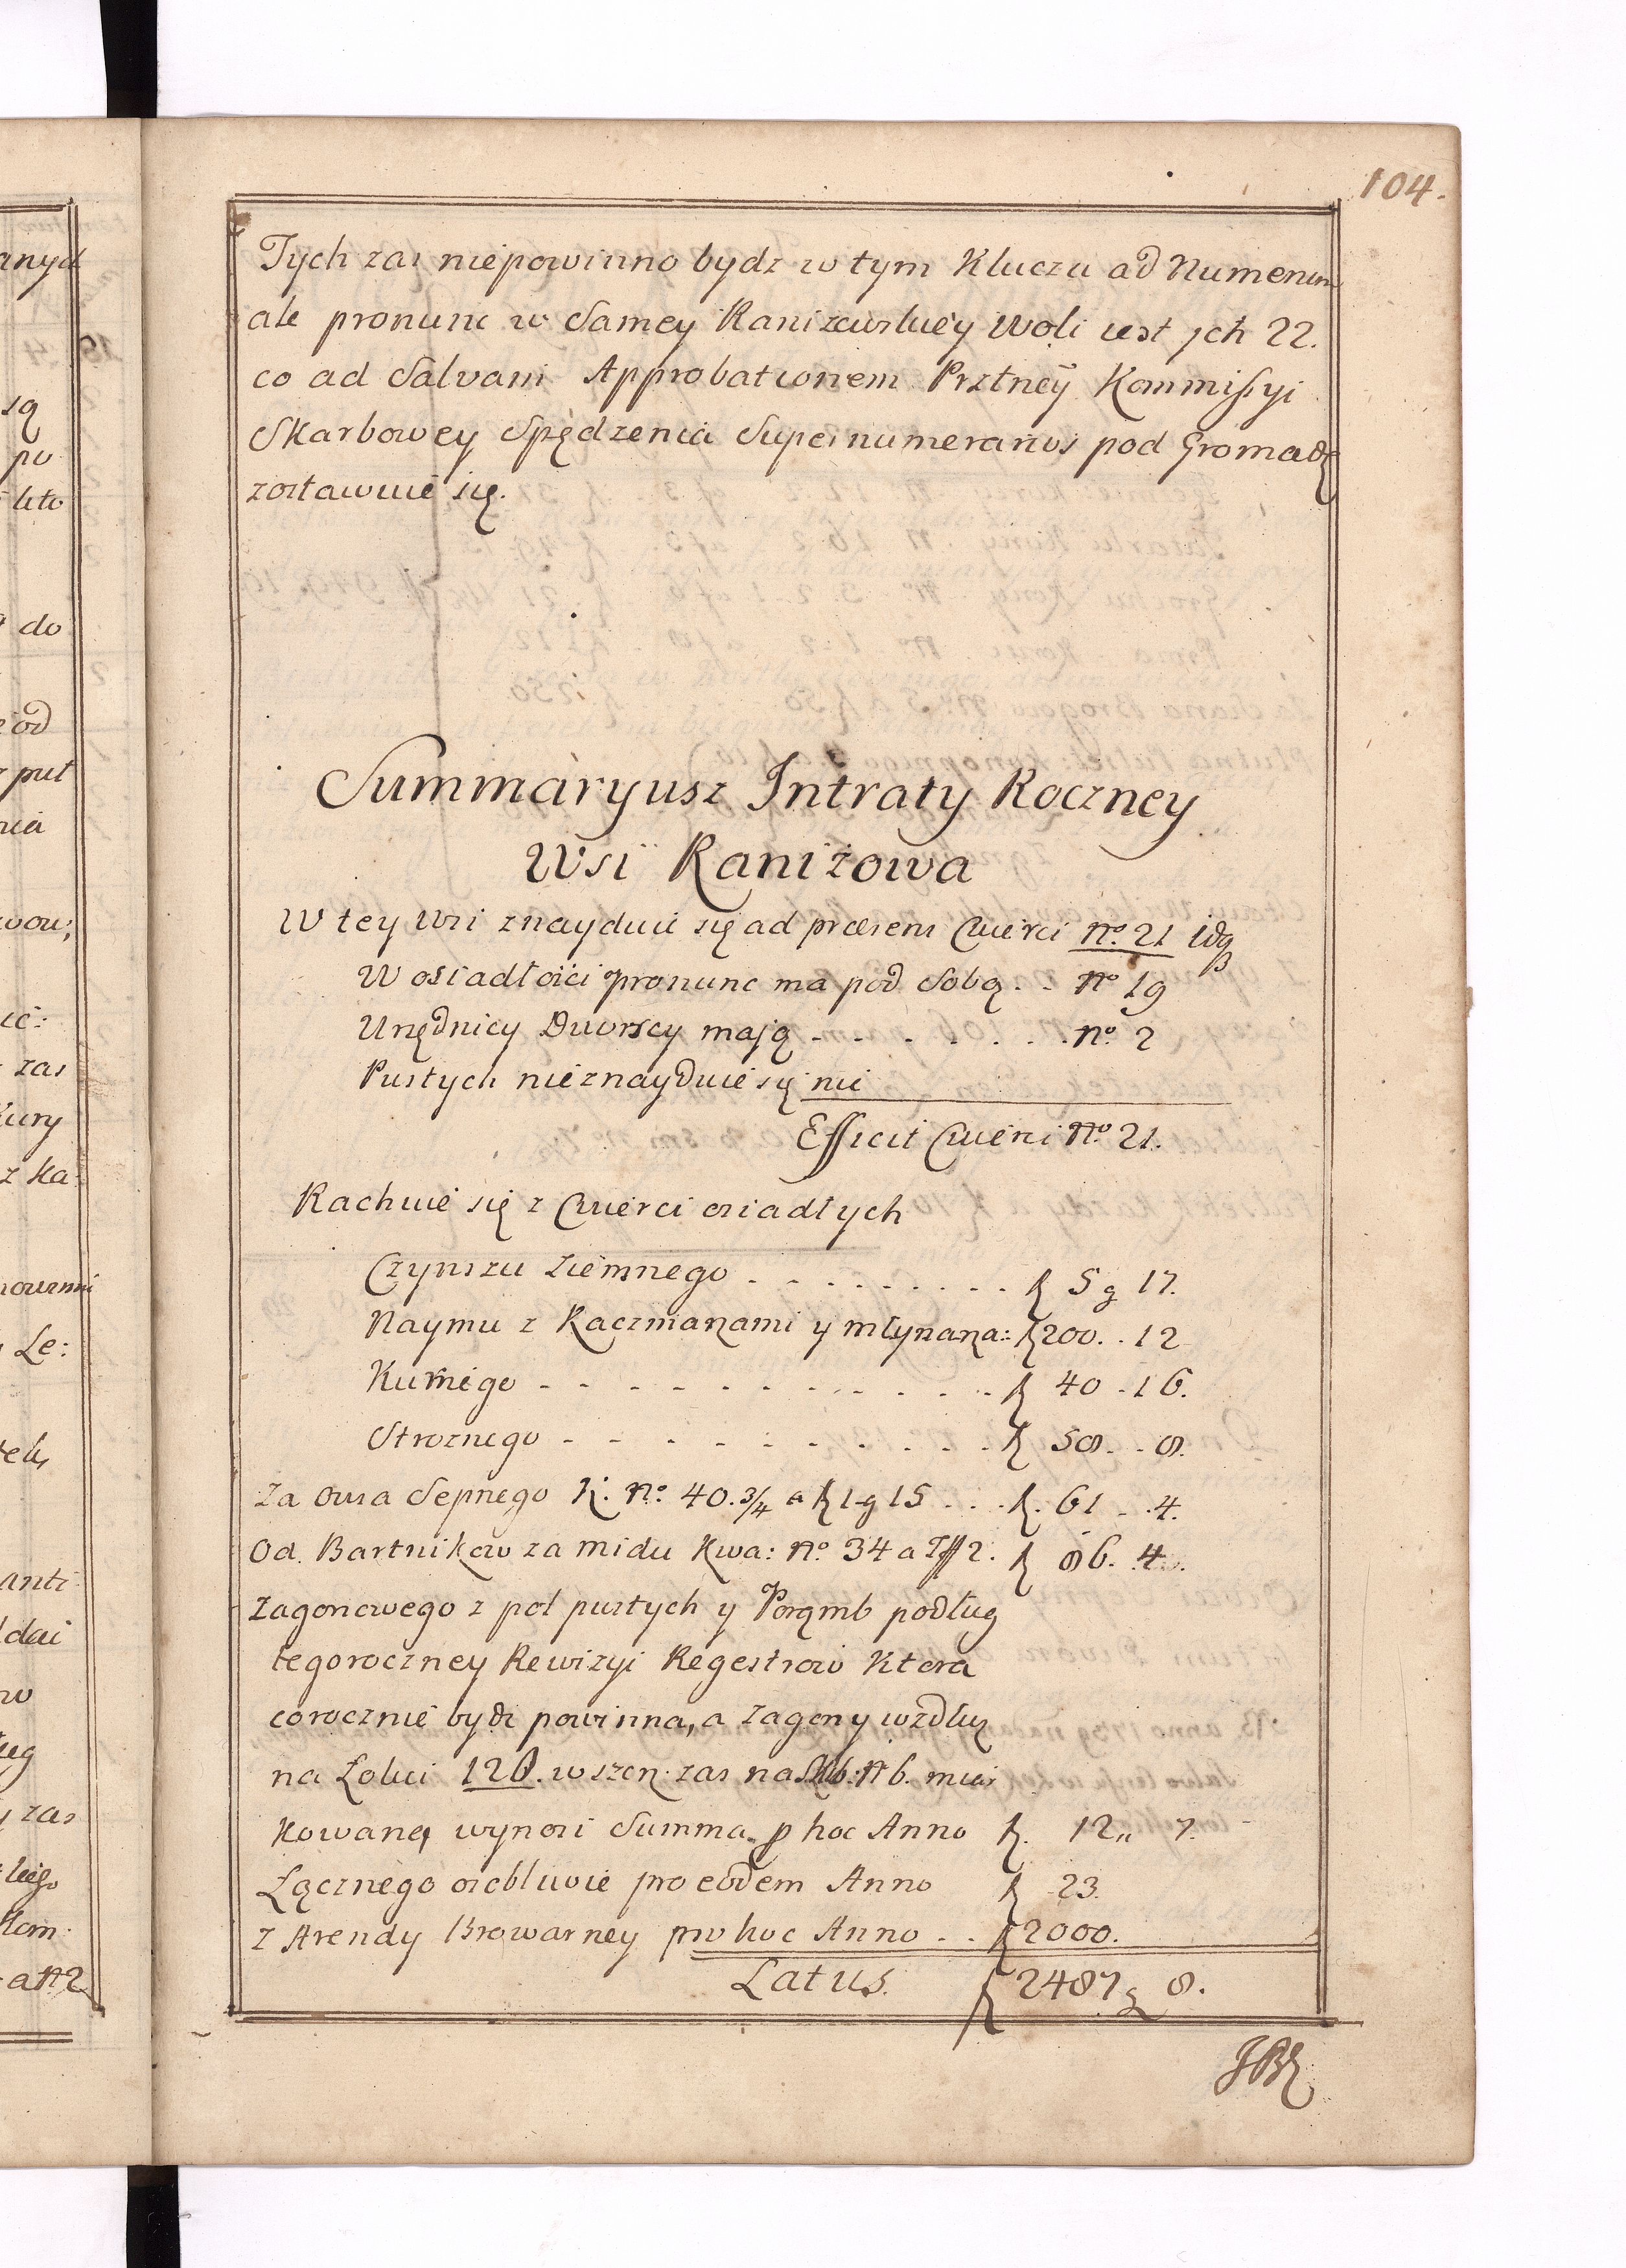 104.
Tych zaś niepowinno bydz w tym Kluczu ad Numerum
ale pronunc w Samey Raniżowskiey Woli iest ych 22.
co ad Salvam Approbationem Prztney Kommissyi
Skarbowey Spędzenia Supernumerarios pod Gromadę
zostawuie się.
Summaryusz Intraty Roczney
Wsi Raniżowa
W tey Wsi znayduie się ad præsens Cwierci No. 21 idq
W osiadłości pronunc ma pod Sobą . . No 19
Urzędnicy Dworscy mają . . . . . . . No. 2
Pustych nieznayduie się nic
Efficit Cwierci No. 21.
Rachuie się z Cwierci osiadłych
Czynszu Ziemnego . . . . . . . . . . f 5 g 17.
Naymu z Karczmarzami y młynarza: f 200. . 12
Kurnego . . . . . . . . . . . . f 40 . 16.
Stroznego . . . . . . . . . . . f 58. . 8.
Za Owsa Sepnego K: No. 40.3/4 a f 1 g 15 . . . f. 61 . .4.
Od Bartnikow za midu Kwa: No. 34 a 2. f 86. 4.
Zagonowego z pol pustych y Porąmb podług
tegoroczney Rewizyi Regestrow Ktora
corocznie bydz powinna, a zagony wzdłuz
na Łokci 120. w szerz zas na No 6. miar
kowane, wynosi Summa p hoc Anno f. 12,, 7.
Łącznego osobliwie pro eodem Anno f 23.
Z Arendy Browarney pro hoc Anno . . f 2000.
Latus. f 2487 g 8.
anych
są
po
lito
do
od
put
nia
zas
Kury
z ka
Le:
anti
dai
w
zas
Kom.